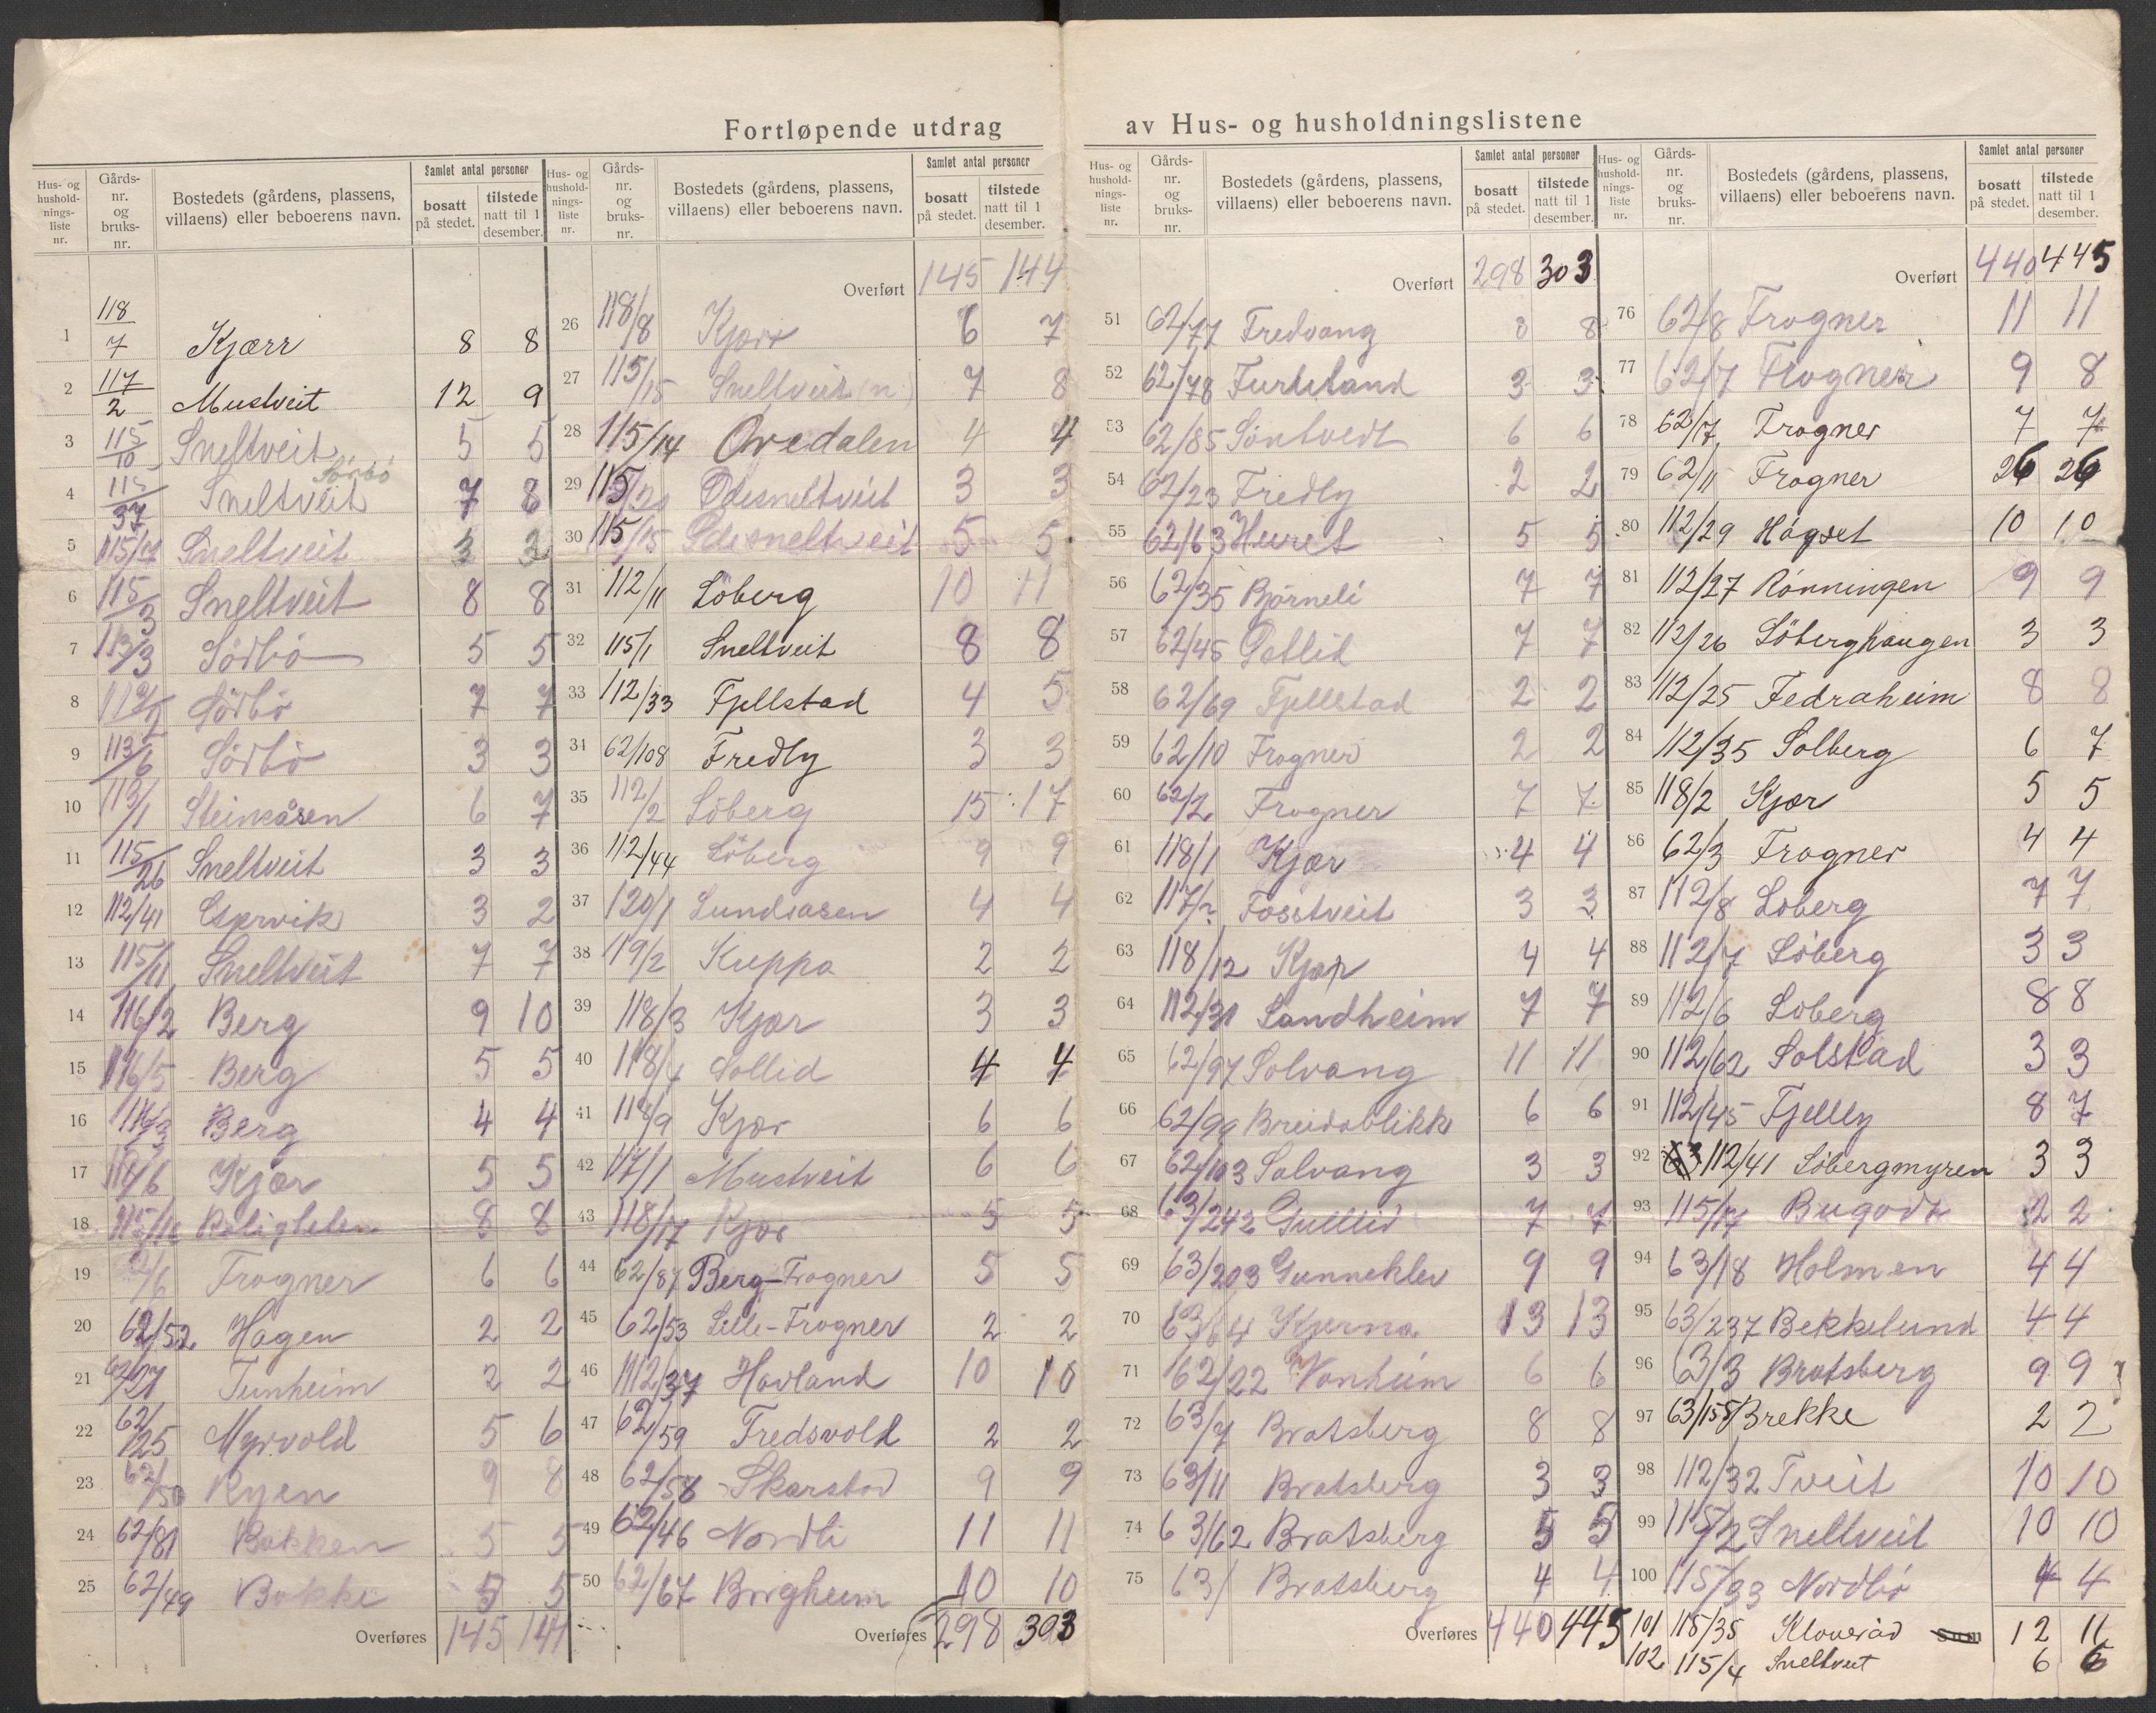 Fortløpende utdrag av Hus- og husholdningslistene
Hus- og hushold-nings-liste nr. Gårds-nr. og bruks-nr. Bostedets (gårdens, plassens, villaens) eller beboerens navn. Samlet antal personer bosatt på stedet. tilstede natt til 1 desember.
1 118/7 Kjærr 8 8
2 117/2 Mustveit 12 9
3 115/10 Sneltveit 5 5
4 115/37 Sneltveit Sörbö 7 8
5 115/7 Sneltveit 3 3
6 115/3 Sneltveit 8 8
7 113/3 Södbö 5 5
8 113/2 Södbö 7 7
9 113/6 Södbö 3 3
10 113/1 Steinsåsen 6 7
11 115/26 Sneltveit 3 3
12 112/41 Espervik 3 2
13 115/11 Sneltveit 7 7
14 116/2 Berg 9 10
15 116/5 Berg 5 5
16 116/3 Berg 4 4
17 118/6 Kjær 5 5
18 115/16 Roligheten 8 8
19 62/6 Frogner 6 6
20 62/52 Hagen 2 2
21 62/27 Tunheim 2 2
22 62/25 Myrvold 5 6
23 62/50 Ryen 9 8
24 62/81 Bakken 5 5
25 62/49 Bakke 5 5
Overføres 145 144
Hus- og hushold-nings-liste nr. Gårds-nr. og bruks-nr. Bostedets (gårdens, plassens, villaens) eller beboerens navn. Samlet antal personer bosatt på stedet. tilstede natt til 1 desember.
Overført 145 144
26 118/8 Kjær 6 7
27 115/15 Sneltveit (n) 7 8
28 115/14 Øvedalen 4 4
29 115/20 Ødesneltveit 3 3
30 115/15 Ødesneltveit 5 5
31 112/11 Löberg 10 11
32 115/1 Sneltveit 8 8
33 112/33 Fjellstad 4 5
34 62/108 Fredly 3 3
35 112/2 Löberg 15 17
36 112/44 Löberg 9 9
37 120/1 Lundsåsen 4 4
38 119/2 Kleppa 2 2
39 118/3 Kjær 3 3
40 118/4 Sollid 4 4
41 118/9 Kjær 6 6
42 117/1 Mustveit 6 6
43 118/17 Kjær 5 5
44 62/87 Berg-Frogner 5 5
45 62/53 Lille-Frogner 2 2
46 112/37 Havland 10 10
47 62/59 Fredsvold 2 2
48 62/58 Skarstad 9 9
49 62/46 Nordli 11 11
50 62/67 Borgheim 10 10
Overføres 298 303
Hus- og hushold-nings-liste nr. Gårds-nr. og bruks-nr. Bostedets (gårdens, plassens, villaens) eller beboerens navn. Samlet antal personer bosatt på stedet. tilstede natt til 1 desember.
Overført 298 303
51 62/77 Fredvang 8 8
52 62/78 Furuland 3 3
53 62/85 Söntvedt 6 6
54 62/23 Fredly 2 2
55 62/63 Hvret 5 5
56 62/35 Björneli 7 7
57 62/45 Solli 7 7
58 62/69 Fjellstad 2 2
59 62/10 Frogner 2 2
60 62/2 Frogner 7 7
61 118/1 Kjær 4 4
62 117/2 Fosstveit 3 3
63 118/12 Kjær 4 4
64 112/31 Sandheim 7 7
65 62/97 Solvang 11 11
66 62/99 Breidablikk 6 6
67 62/103 Solvang 3 3
68 63/242 Gullid 7 7
69 63/203 Gunneklev 9 9
70 63/64 Kjerna 13 13
71 62/22 Vonheim 6 6
72 63/7 Bratsberg 8 8
73 63/11 Bratsberg 3 3
74 63/62 Bratsberg 5 5
75 63/ Bratsberg 4 4
Overføres 440 445
Hus- og hushold-nings-liste nr. Gårds-nr. og bruks-nr. Bostedets (gårdens, plassens, villaens) eller beboerens navn. Samlet antal personer bosatt på stedet. tilstede natt til 1 desember.
Overført 440 445
76 62/8 Frogner 11 11
77 62/7 Frogner 9 8
78 62/17 Frogner 7 7
79 62/11 Frogner 26 26
80 112/29 Högset 10 10
81 112/27 Rönningen 9 9
82 112/26 Löberghaugen 3 3
83 112/25 Fedraheim 8 8
84 112/35 Solberg 6 7
85 118/2 Kjær 5 5
86 62/3 Frogner 4 4
87 112/8 Löberg 7 7
88 112/7 Löberg 3 3
89 112/6 Löberg 8 8
90 112/62 Solstad 3 3
91 112/45 Fjelly 8 7
92 112/41 Löbergmyren 3 3
93 115/17 Bugodt 2 2
94 63/18 Holmen 4 4
95 63/237 Bekkelund 4 4
96 63/3 Bratsberg 9 9
97 63/158 Brekke 2 2
98 112/32 Tveit 10 10
99 115/2 Sneltveit 10 10
100 115/33 Nordbö 4 4
101 115/35 Kloverød Sum 12 11
102 115/4 Sneltveit 6 6